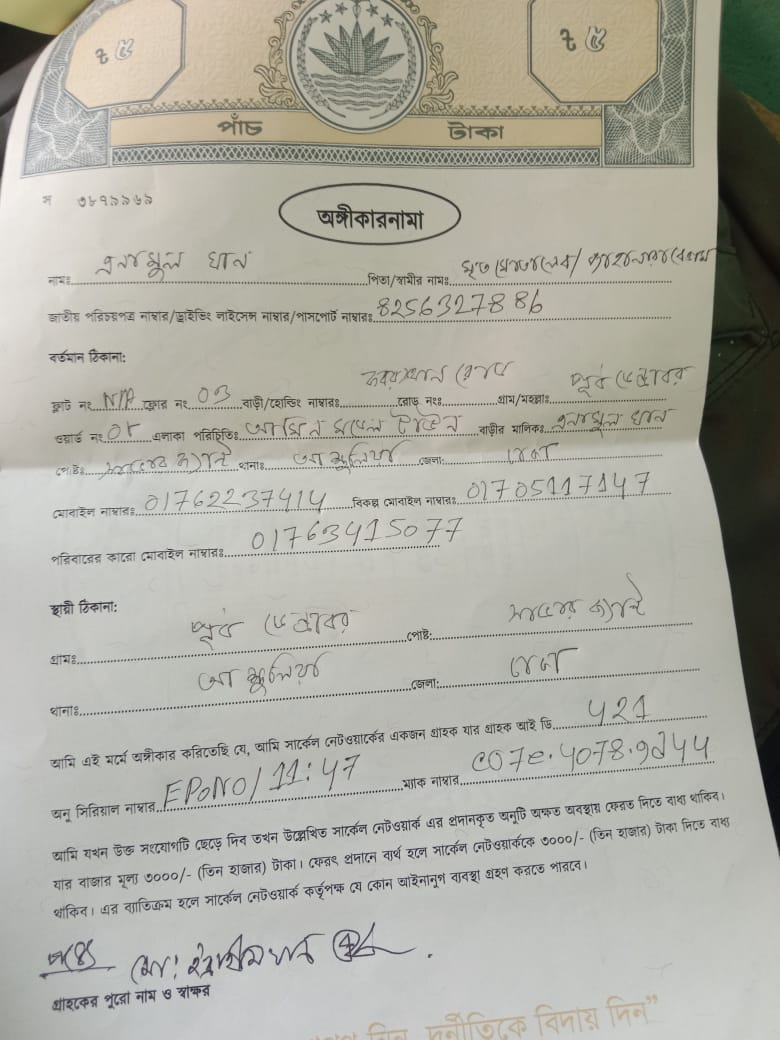 ৳ ৫ ৳ ৫
পাঁচ টাকা
ম ৩৮৭৯৯৬৯
অঙ্গীকারনামা
নামঃ এনামুল খান পিতা/স্বামীর নামঃ মৃত
জাতীয় পরিচয়পত্র নাম্বার/ড্রাইভিং লাইসেন্স নাম্বার/পাসপোর্ট নাম্বারঃ 8256327886
বর্তমান ঠিকানা:
ফ্লাট নং N/A ফ্লোর নং 03 বাড়ী/হোল্ডিং নাম্বারঃ রোড় নংঃ গ্রাম/মহল্লাঃ পূর্ব
ওয়ার্ড নং 0৮ এলাকা পরিচিতিঃ আমিন মডেল টাউন বাড়ীর মালিকঃ এনামুল খান
পোষ্টঃ থানাঃ আশুলিয়া জেলা: ঢাকা
মোবাইল নাম্বারঃ 01762237414 বিকল্প মোবাইল নাম্বারঃ 01705117147
পরিবারের কারো মোবাইল নাম্বারঃ 01763415077
স্থায়ী ঠিকানা:
গ্রামঃ পূর্ব পোষ্ট:
থানাঃ আশুলিয়া জেলা: ঢাকা
আমি এই মর্মে অঙ্গীকার করিতেছি যে, আমি সার্কেল নেটওয়ার্কের একজন গ্রাহক যার গ্রাহক আই ডি 421
অনু সিরিয়াল নাম্বার EPONO/11:47 ম্যাক নাম্বার c07e.4078.9d44
আমি যখন উক্ত সংযোগটি ছেড়ে দিব তখন উল্লেখিত সার্কেল নেটওয়ার্ক এর প্রদানকৃত অনুটি অক্ষত অবস্থায় ফেরত দিতে বাধ্য থাকিব।
যার বাজার মূল্য ৩০০০/- (তিন হাজার) টাকা। ফেরৎ প্রদানে ব্যর্থ হলে সার্কেল নেটওয়ার্ককে ৩০০০/- (তিন হাজার) টাকা দিতে বাধ্য
থাকিব। এর ব্যতিক্রম হলে সার্কেল নেটওয়ার্ক কর্তৃপক্ষ যে কোন আইনানুগ ব্যবস্থা গ্রহণ করতে পারবে।
মো: ইব্রাহীম খান
গ্রাহকের পুরো নাম ও স্বাক্ষর
দিন, দুর্নীতিকে বিদায় দিন”